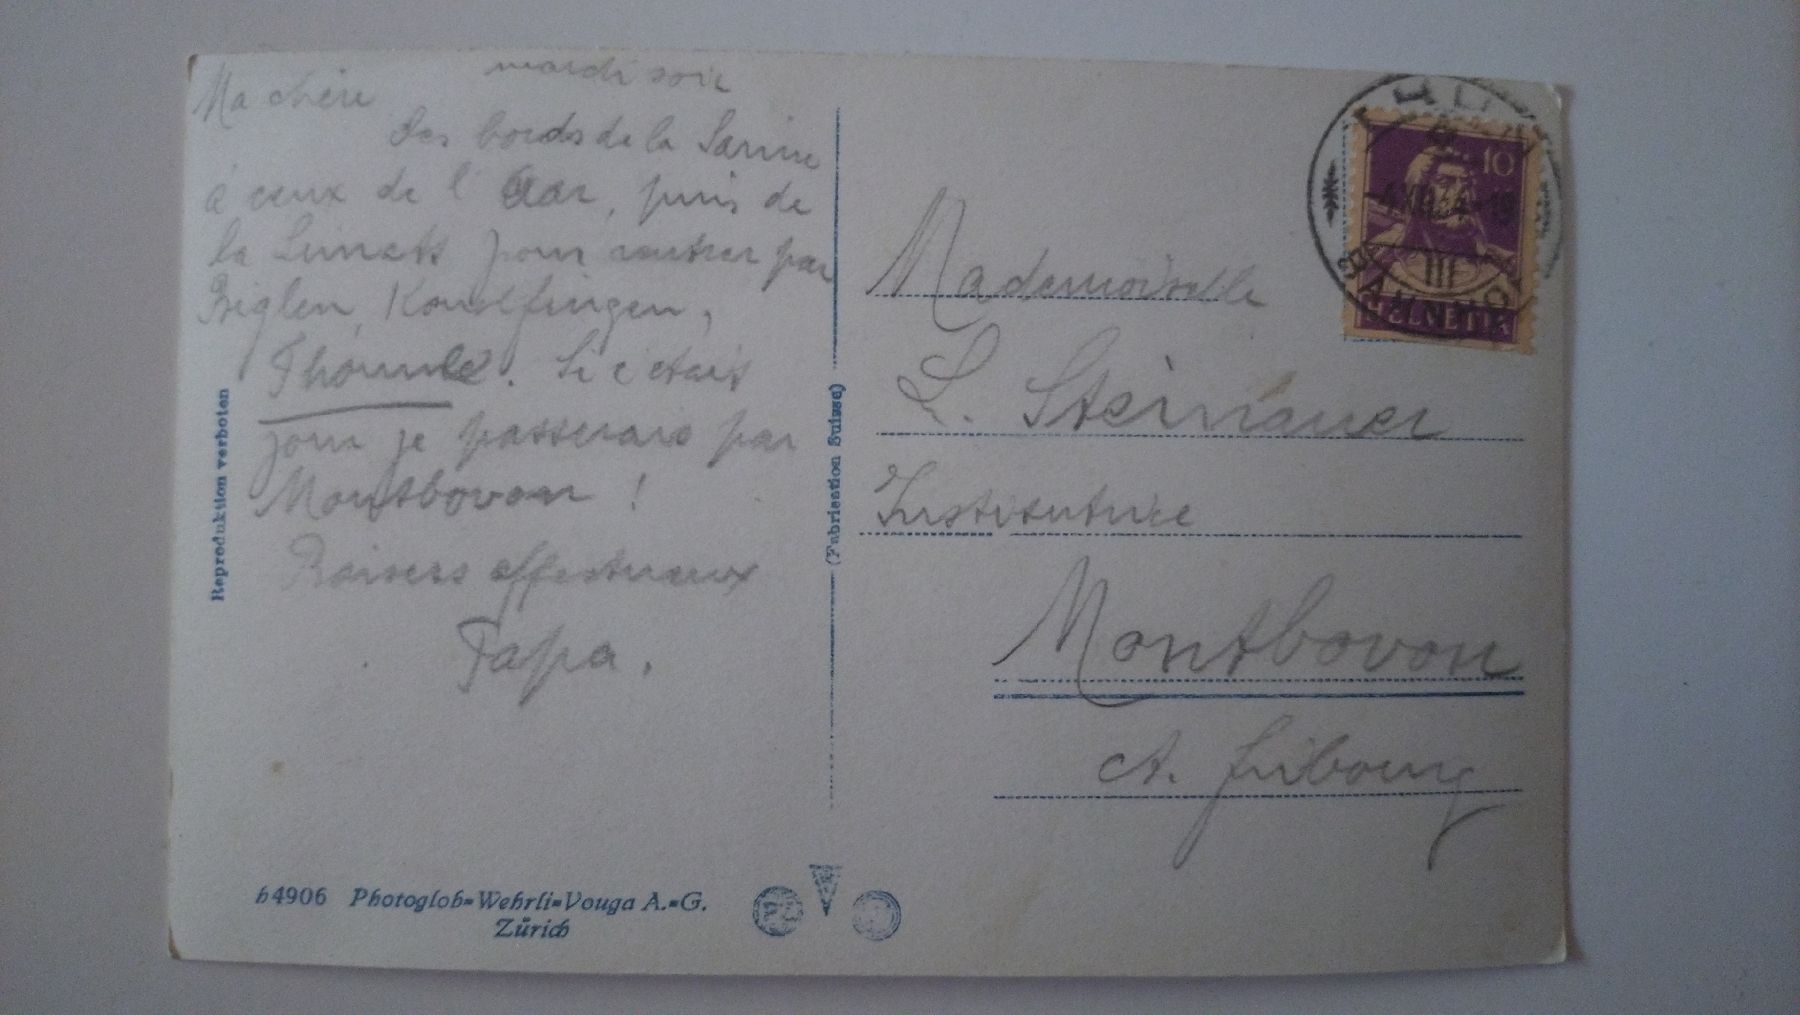 mardi soir
Ma chère
des bords de la Sarine
à ceux de l'Aar, puis de
la Limatt pour rentrer par
Biglen, Konolfingen,
Thoune. Si c'était
jour je passerais par
Montbovon !
Baisers affectueux
Papa.
Reproduktion verboten
(Fabrication Suisse)
b4906 Photoglob-Wehrli-Vouga A.-G.
Zürich
THUN
10
III
BAHNHOF
HELVETIA
Mademoiselle
L. Steinauer
Institutrice
Montbovon
ct. Fribourg